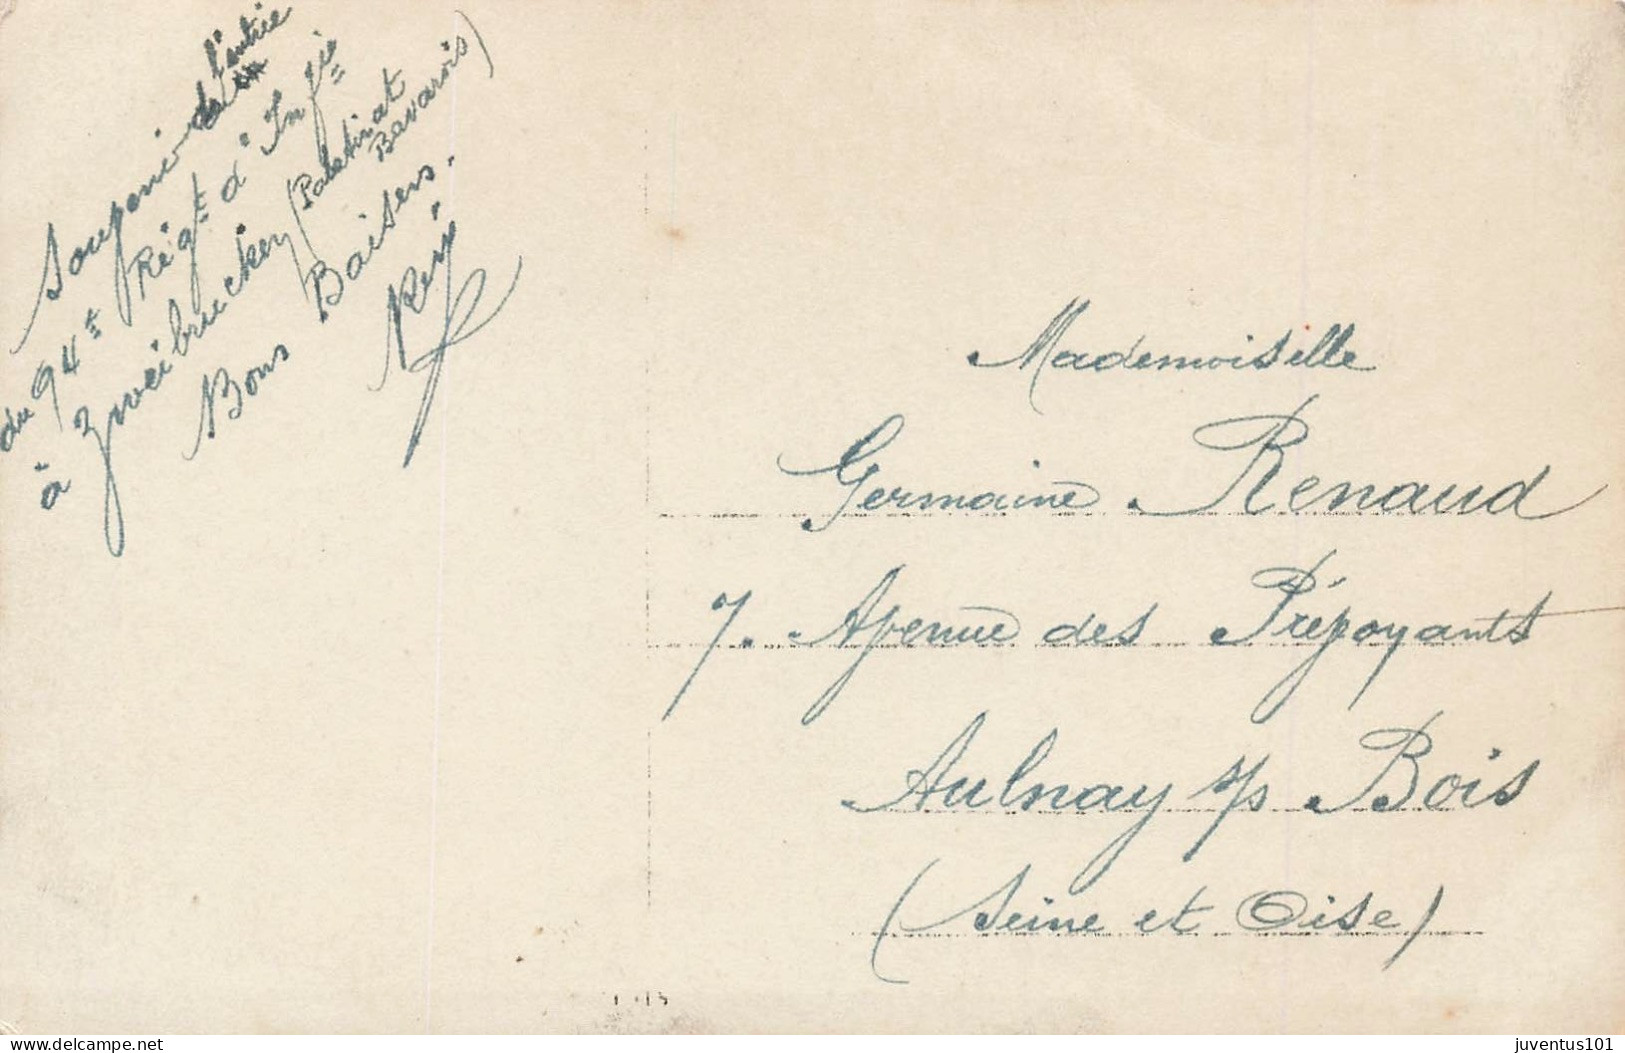 Souvenir de l'entrée
du 94e Régt d'Infie
à Zweibrucken (Palatinat
Bavarois)
Bons Baisers.
Mademoiselle
Germaine Renaud
7. Avenue des Prévoyants
Aulnay s/s Bois
(Seine et Oise)
www.delcampe.net
juventus101